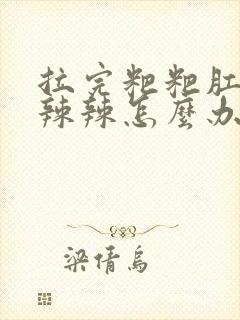 拉完粑粑肛
辣辣怎麼办
梁倩鸟